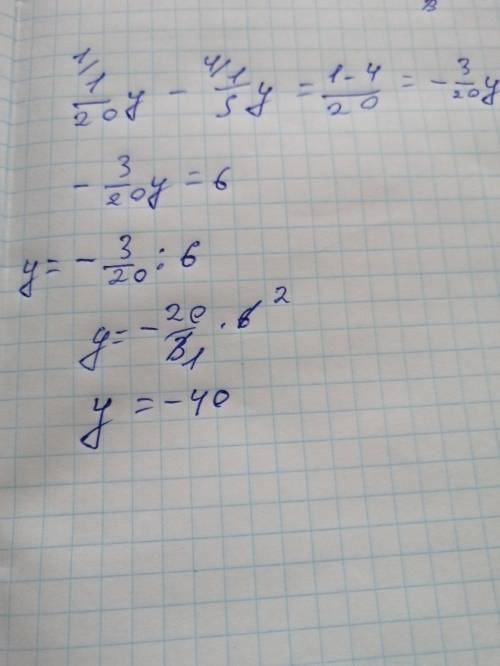 1/ 1/20 y - 4/ 1/5 y = 1-4/20 = - 3/20 y
- 3/20 y = 6
y = - 3/20 : 6
y = - 20/3 1 · 6 2
y = -40